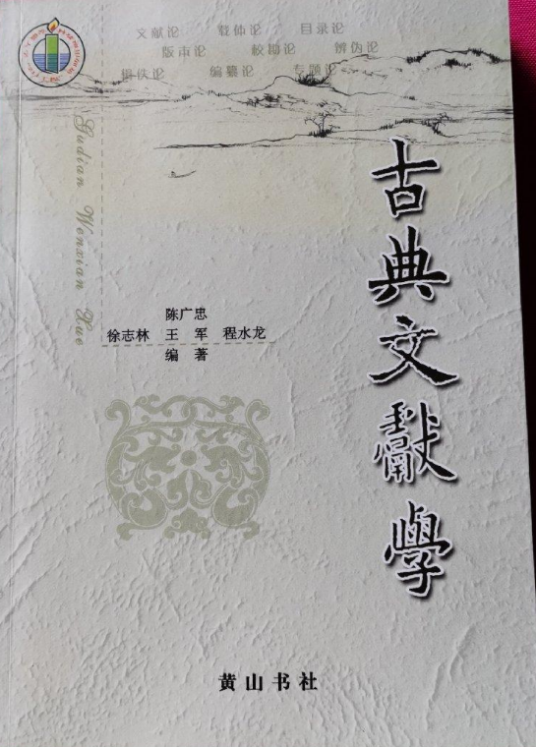 文献论 载体论 目录论
版本论 校勘论 辨伪论
辑佚论 编纂论 专题论
Gudian Wenxian Xue
古典文獻學
陈广忠
徐志林 王军 程水龙
编著
黄山书社